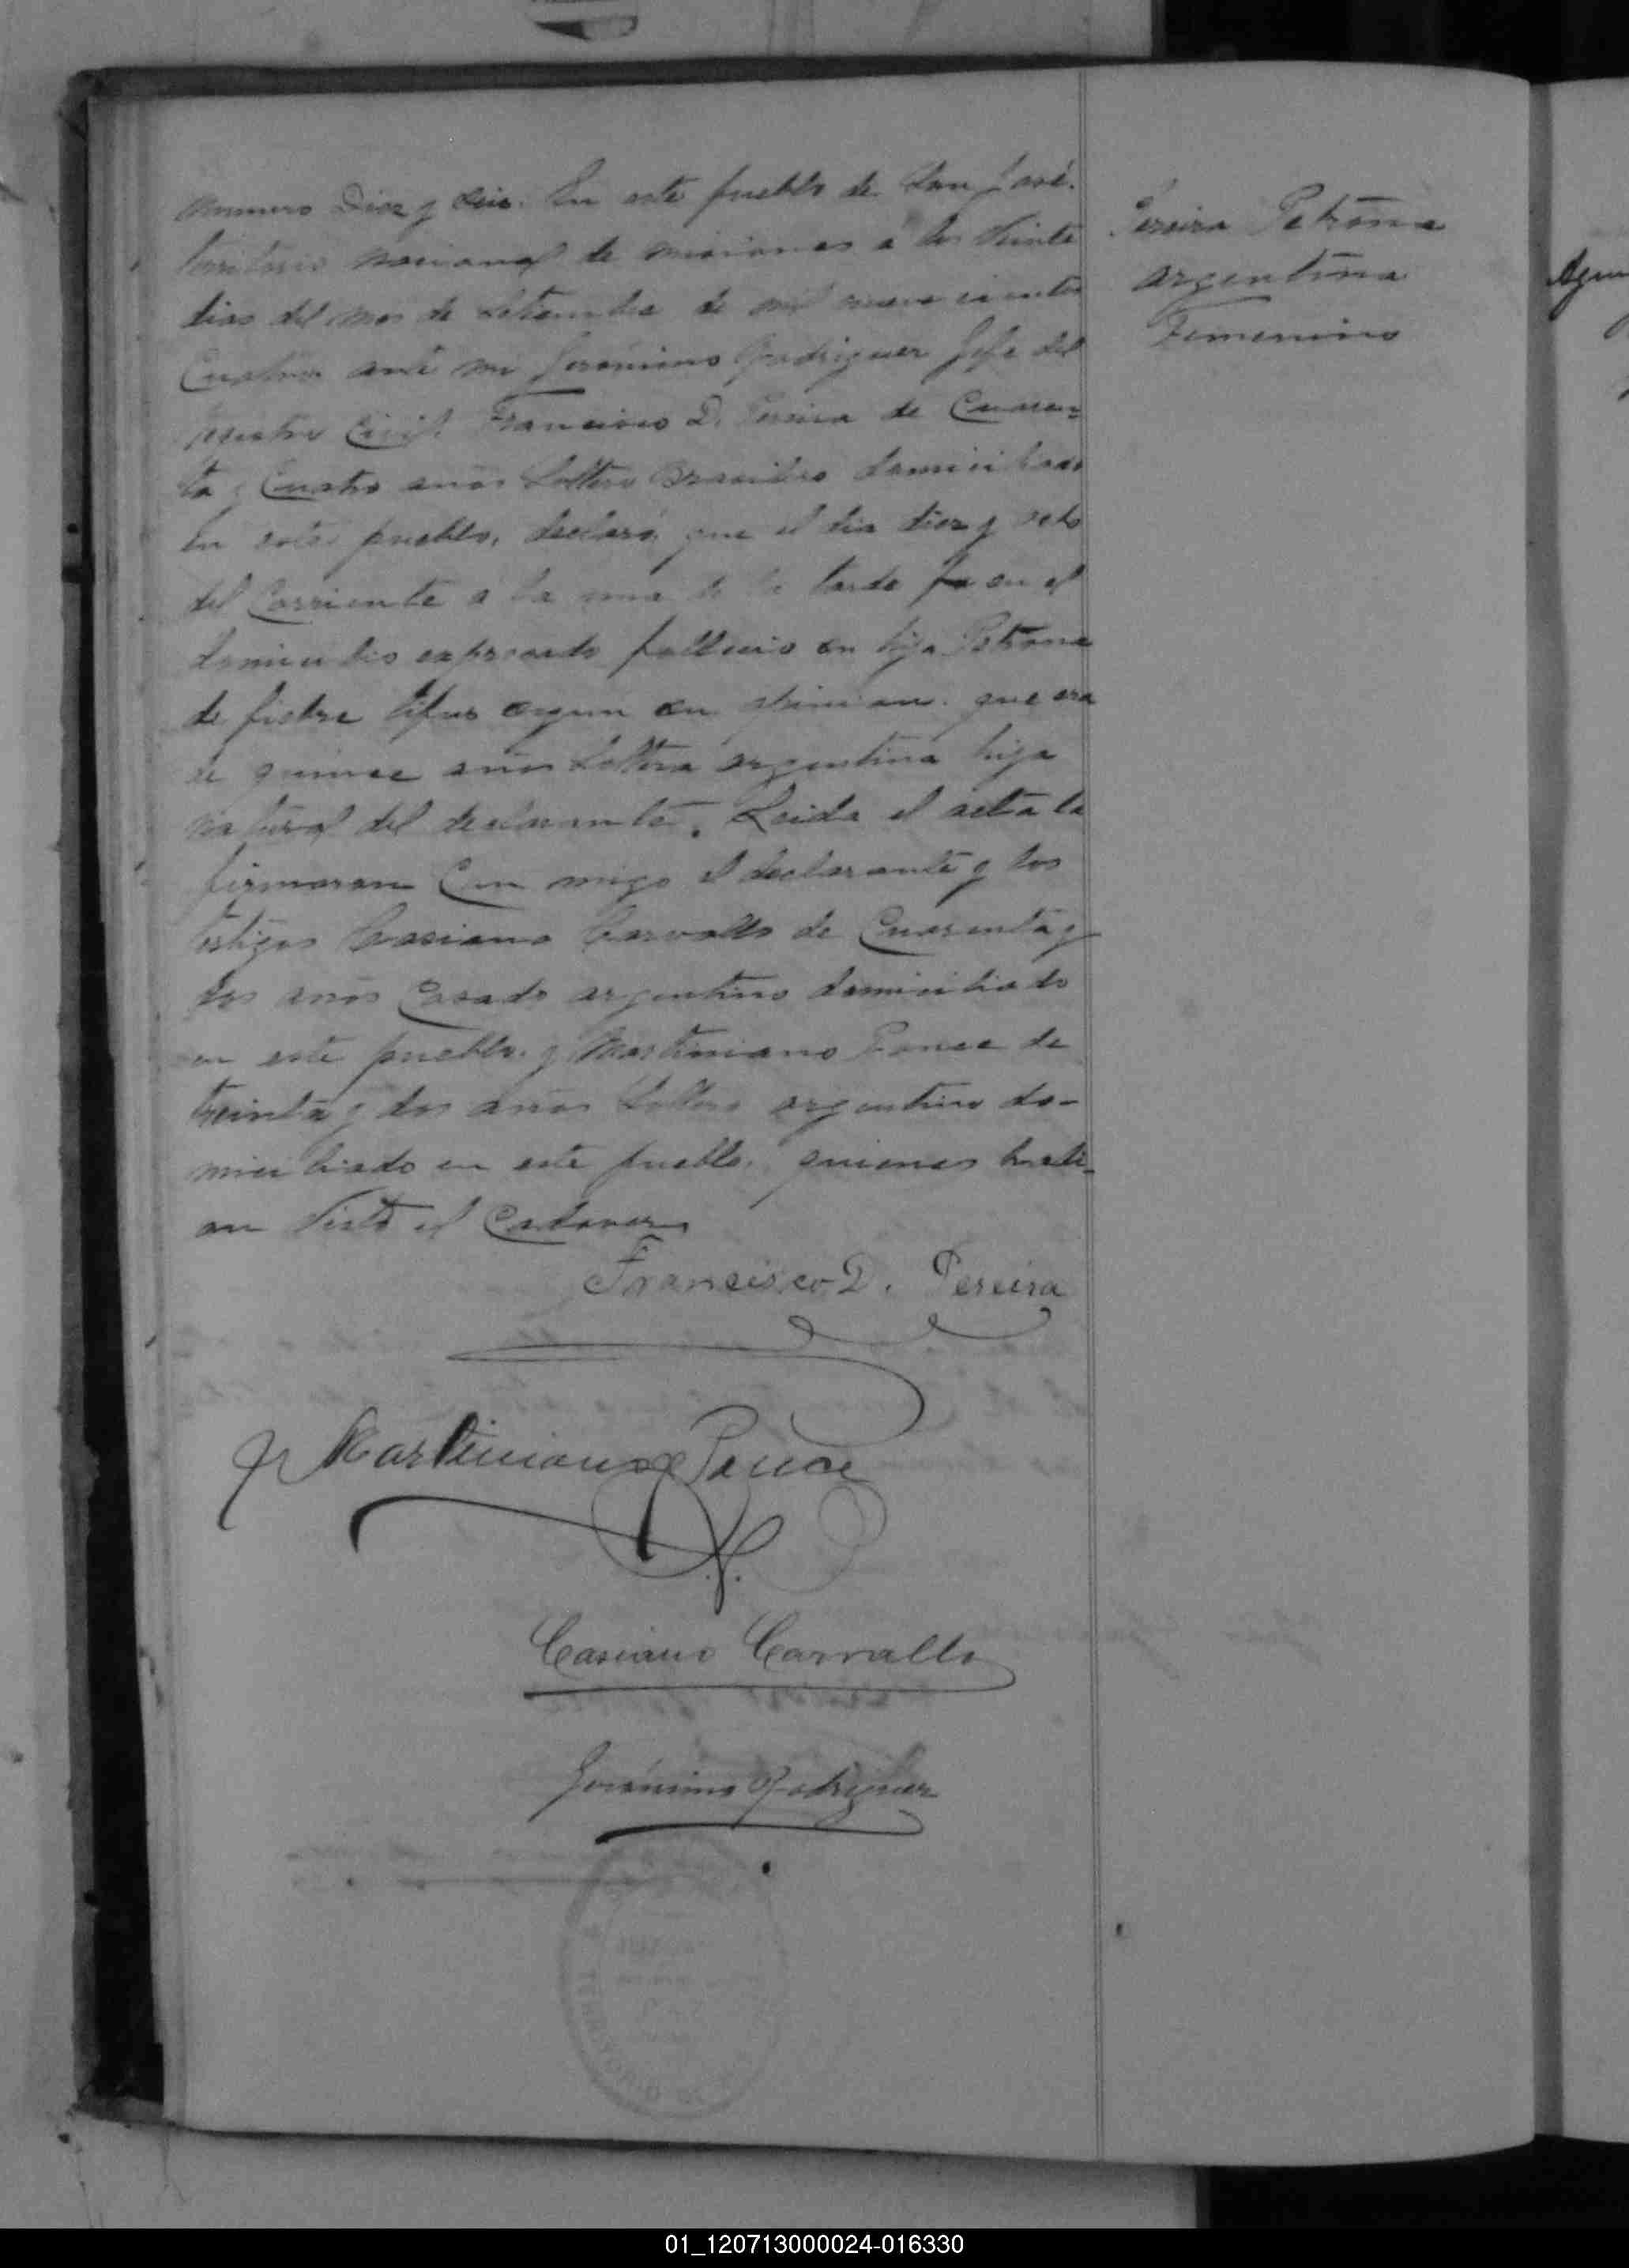 numero Diez y Seis. En este pueblo de San José.
territorio nacional de misiones a los Veinte
dias del mes de Setiembre de mil nueve cientos
Cuatro ante mi Jerónimo Rodriguez Jefe del
registro Civil. Francisco D. Pereira de Cuaren-
ta y Cuatro años Soltero Brasilero domiciliado
en este pueblo, declaró que el dia diez y ocho
del Corriente a la una de la tarde en el
domicilio expresado fallecio su hija Petrona
de fiebre tifus segun su que era
de quince años Soltera argentina hija
natural del declarante. Leida el acta la
firmaron Con migo el declarante y los
testigos Casiano Carvallo de Cuarenta y
dos años Casado argentino domiciliado
en este pueblo. y Martiniano Ponce de
treinta y dos años Soltero argentino do-
miciliado en este pueblo. quienes habi-
an visto el Cadaver
Francisco D. Pereira
Martiniano Ponce
Casiano Carvallo
Jerónimo Rodriguez
Pereira Petrona
argentina
Femenino
TERRITORIO
01_120713000024-016330